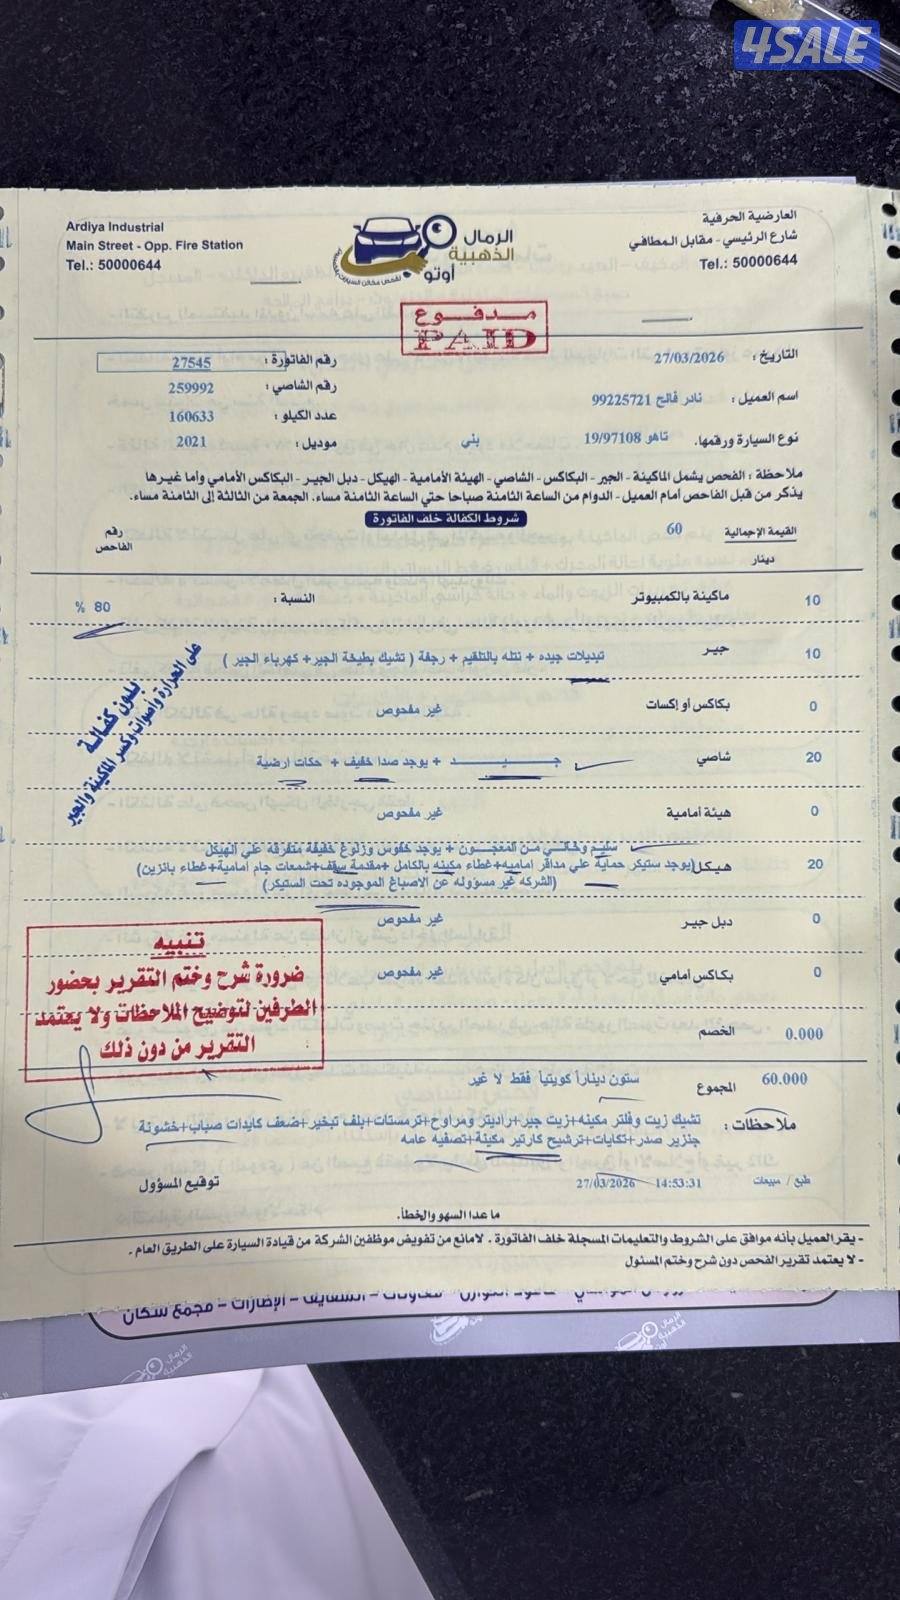 4SALE
Ardiya Industrial
Main Street - Opp. Fire Station
Tel.: 50000644
الرمال
الذهبية
أوتو
العارضية الحرفية
شارع الرئيسي - مقابل المطافي
Tel.: 50000644
مدفوع
PAID
التاريخ : 27/03/2026
رقم الفاتورة : 27545
رقم الشاصي : 259992
اسم العميل : نادر فالح 99225721
عدد الكيلو : 160633
نوع السيارة ورقمها. تاهو 19/97108 بني
موديل : 2021
ملاحظة : الفحص يشمل الماكينة - الجير - البكاكس - الشاصي - الهيئة الأمامية - الهيكل - دبل الجير - البكاكس الأمامي وأما غيرها
يذكر من قبل الفاحص أمام العميل - الدوام من الساعة الثامنة صباحا حتي الساعة الثامنة مساء. الجمعة من الثالثة إلى الثامنة مساء.
شروط الكفالة خلف الفاتورة
القيمة الإجمالية 60
دينار
رقم
الفاحص
10 ماكينة بالكمبيوتر النسبة : 80 %
10 جير تبديلات جيده + نتله بالتلقيم + رجفة ( تشيك بطيخة الجير + كهرباء الجير )
بدون كفالة
على الحرارة وأصوات وكسر الماكينة والجير
0 بكاكس أو إكسات غير مفحوص
20 شاصي جيد + يوجد صدا خفيف + حكات ارضية
0 هيئة أمامية غير مفحوص
سليم وخالي من المعجون + يوجد خفوس وزلوغ خفيفة متفرقه علي الهيكل
20 هيكل (يوجد ستيكر حماية علي مدافر اماميه+غطاء مكينه بالكامل+مقدمة سقف+شمعات جام امامية+غطاء بانزين)
(الشركه غير مسؤوله عن الاصباغ الموجوده تحت الستيكر)
0 دبل جير غير مفحوص
0 بكاكس أمامي غير مفحوص
تنبيه
ضرورة شرح وختم التقرير بحضور
الطرفين لتوضيح الملاحظات ولا يعتمد
التقرير من دون ذلك
0.000 الخصم
60.000 المجموع ستون ديناراً كويتياً فقط لا غير
ملاحظات : تشيك زيت وفلتر مكينه+زيت جير+راديتر ومراوح+ترمستات+بلف تبخير+ضعف كايدات صباب+خشونة
جنزير صدر+تكايات+ترشيح كارتير مكينة+تصفيه عامه
طبع / مبيعات 14:53:31 27/03/2026
توقيع المسؤول
ما عدا السهو والخطأ.
- يقر العميل بأنه موافق على الشروط والتعليمات المسجلة خلف الفاتورة . لامانع من تفويض موظفين الشركة من قيادة السيارة على الطريق العام .
- لا يعتمد تقرير الفحص دون شرح وختم المسئول
الإطارات - مجمع سكان